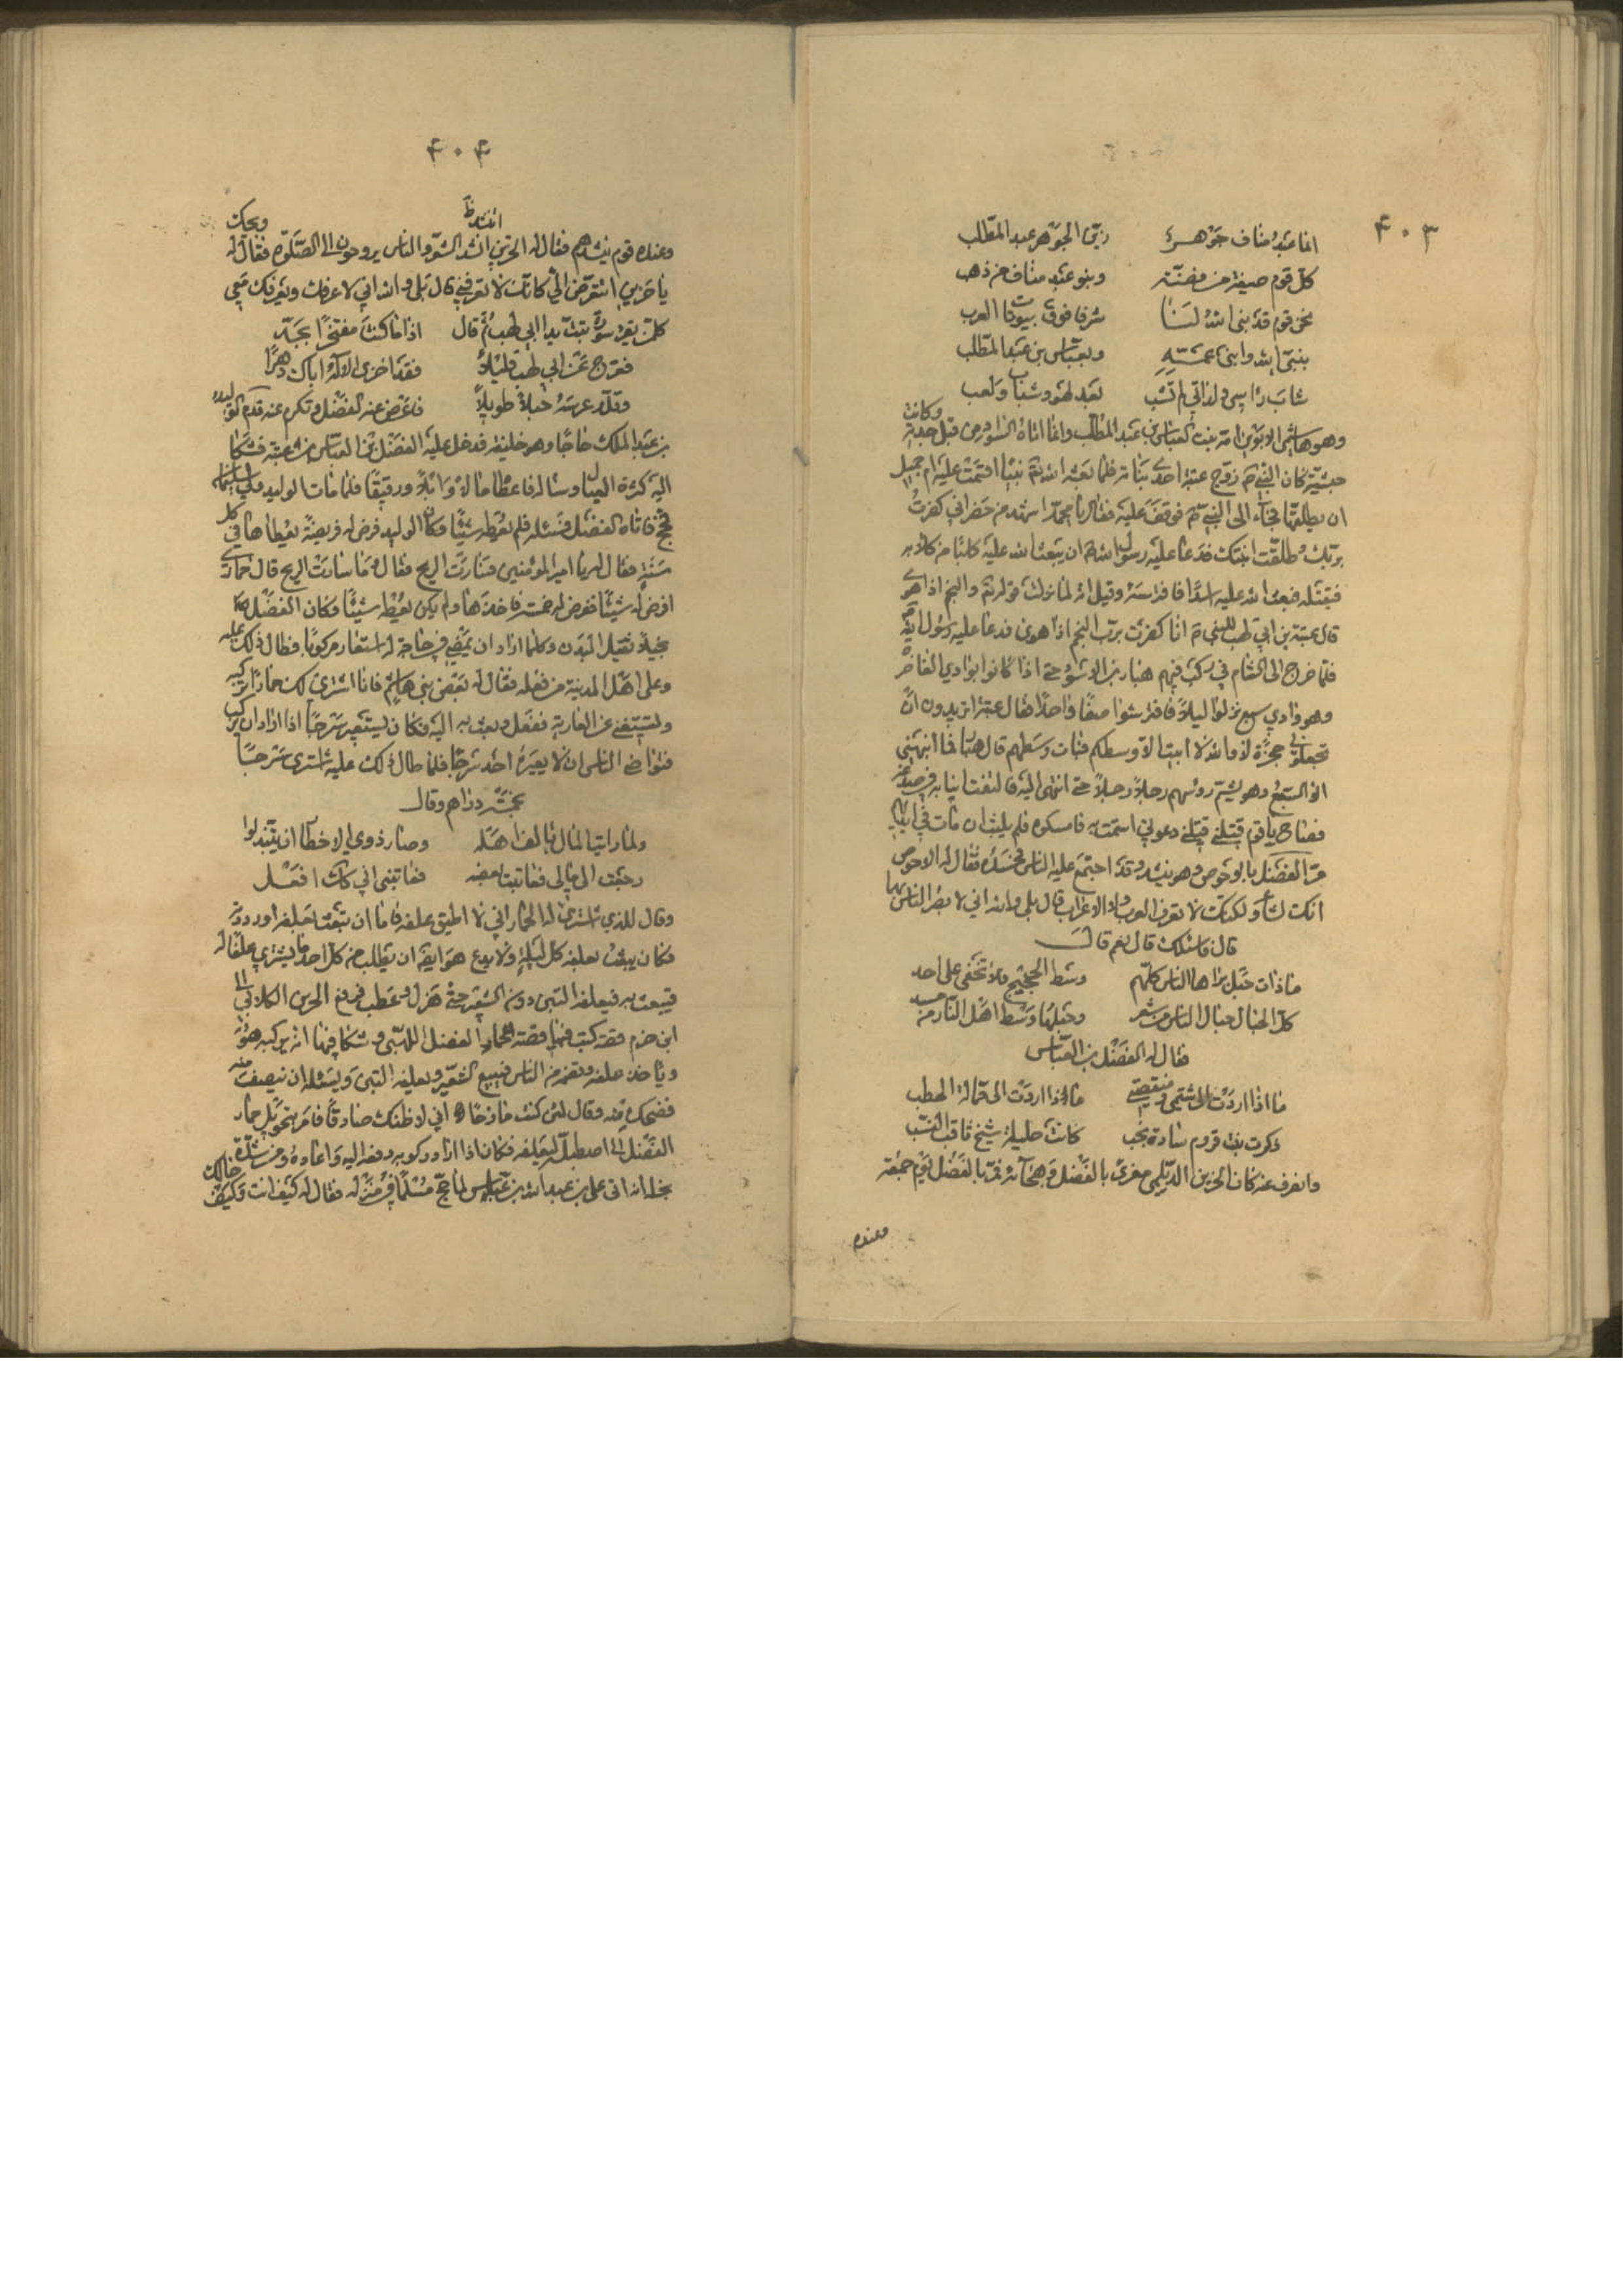 ۴۰۳
انما عبد مناف جوهر زين الجوهر عبد المطلب
كل قوم صيغة من فضة وبنو عبد مناف من ذهب
نحن قوم قد بنى الله لنا شرفا فوق بيوتات العرب
بنبي الله وابني عمه وبعباس بن عبد المطلب
شاب راسي ولداتي لم تشب بعد لهو وشباب ولعب
وهو هاشمي الابوين امه بنت العباس بن عبد المطلب وانما اتاه السواد من قبل جدته وكانت
حبشية كان النبي زوج عتبة احدى بناته فلما بعثه الله نبيا اقسمت عليه ام جميل
ان يطلقها فجاء الى النبي فوقف عليه فقال يا محمد اشهد من حضر اني كفرت
بربك وطلقت ابنتك فدعا عليه رسول الله ان يبعث الله عليه كلبا من كلابه
فيقتله فبعث الله عليه اسدا فافترسه وقيل انه لما نزلت سورة والنجم اذا هوى
قال عتبة بن ابي لهب للنبي انا كفرت برب النجم اذا هوى فدعا عليه رسول الله
فلما خرج الى الشام في ركب فيهم هبار بن الاسود حتى اذا كانوا بوادي الغاضرة
وهو وادي سبع نزلوا ليلا فافترشوا صفا واحدا فقال عتبة اتريدون ان
تجعلوني حجزة لا والله لا ابيت الا وسطكم فبات وسطهم قال هبار فما انبهني
الا السبع وهو يشم رؤسهم رجلا رجلا حتى انتهى اليه فالتفت انيابه في صدغيه
فصاح يا قوم قتلني قتلني دعوة محمد فامسكوه فلم يلبث ان مات في ايديهم
مر الفضل بالاحوص وهو ينشد وقد اجتمع عليه الناس فحسده فقال له الاحوص
انك لشاعر ولكنك لا تعرف العرب ولا الاعراب قال بلى والله اني لابصر الناس بها
قال فاسئلك قال نعم قال
ما ذات حبل يراها الناس كلهم وسط الجحيم ولا تخفى على احد
كل الحبال حبال الناس من شعر وحبلها وسط اهل النار من مسد
فقال له الفضل بن العباس
ماذا اردت الى شتمي ومنقصتي ماذا اردت الى حمالة الحطب
ذكرت بنت قروم سادة نجب كانت حليلة شيخ ثاقب النسب
وانصرف عنه كان الحزين الديلمي مغرى بالفضل وهجائه فمر بالفضل يوم جمعة
وعنده
۴۰۴
وعنده قوم ينشدهم فقال له الحزين اتنشد الشعر والناس يروحون الى الصلوة فقال له ويحك
يا حزين اتتعرض الي كانك لا تعرفني قال بلى والله اني لاعرفك ويعرفك معي
كل من يقرء سورة تبت يدا ابي لهب ثم قال اذا ما كنت مفتخرا بجد
فعرج عن ابي لهب قليلا فقد اخزى الاله اباك دهرا
وقلد عرسه حبلا طويلا فاعرض عنه الفضل وتكرم عنه قدم الوليد
بن عبد الملك حاجا وهو خليفة فدخل عليه الفضل بن العباس بن عتبة فشكا
اليه كثرة العيال وساله فاعطاه مالا وابلا ورقيقا فلما مات الوليد وولي سليمان
حج فاتاه الفضل فسئله فلم يعطه شيئا وكان الوليد فرض له فريضة يعطاها في كل
سنة فقال له يا امير المؤمنين
افرض له شيئا ففرض له خمسة فاخذها ولم يكن يعطه شيئا وكان الفضل
بخيلا ثقيل البدن وكلما اراد ان يمضي في حاجة له استعار مركوبا فطال ذلك عليه
وعلى اهل المدينة من فعله فقال له بعض بني هاشم فانا اشتري لك حمارا تركبه
وتستغني عن العارية ففعل وبعث به اليه فكان يستعير سرجا اذا اراد ان يركب
فتواصى الناس ان لا يعيره احد سرجا فلما طال ذلك عليه اشترى سرجا
بخمسة دراهم وقال
ولما رايت المال مالف اهله وصار ذوي الاخطار ان يتبذلوا
رجعت الى مالي فعاتبت بعضه فعاتبني اني كذلك افعل
وقال للذي اشترى له الحمار اني لا اطيق علفه فاما ان تبعث بعلفه او رددته
فكان يبعث بعلفه كل ليلة ولا يدع هو ايضا ان يطلب من كل احد ما يشتري علفا له
فيبعث به فيعلفه التبن دون الشعير حتى هزل وعطب فرفع الحزين الكلابي الى
ابن حزم قصة كتب فيها قصة حمار الفضل اللهبي وشكا فيها انه يركبه هو
وياخذ علفه ونفقته من الناس فيبيع الشعير ويعلفه التبن ويسئله ان ينصف منه
فضحك منه وقال لئن كنت مازحا اني لاظنك صادقا فامر بتحويل حمار
الفضل الى اصطبله ليعلفه فكان اذا اراد ركوبه دفعه اليه واعاده ومن شدة
بخله انه اتى علي بن عبد الله بن عباس لما حج مسلما في منزله فقال له كيف انت وكيف حالك